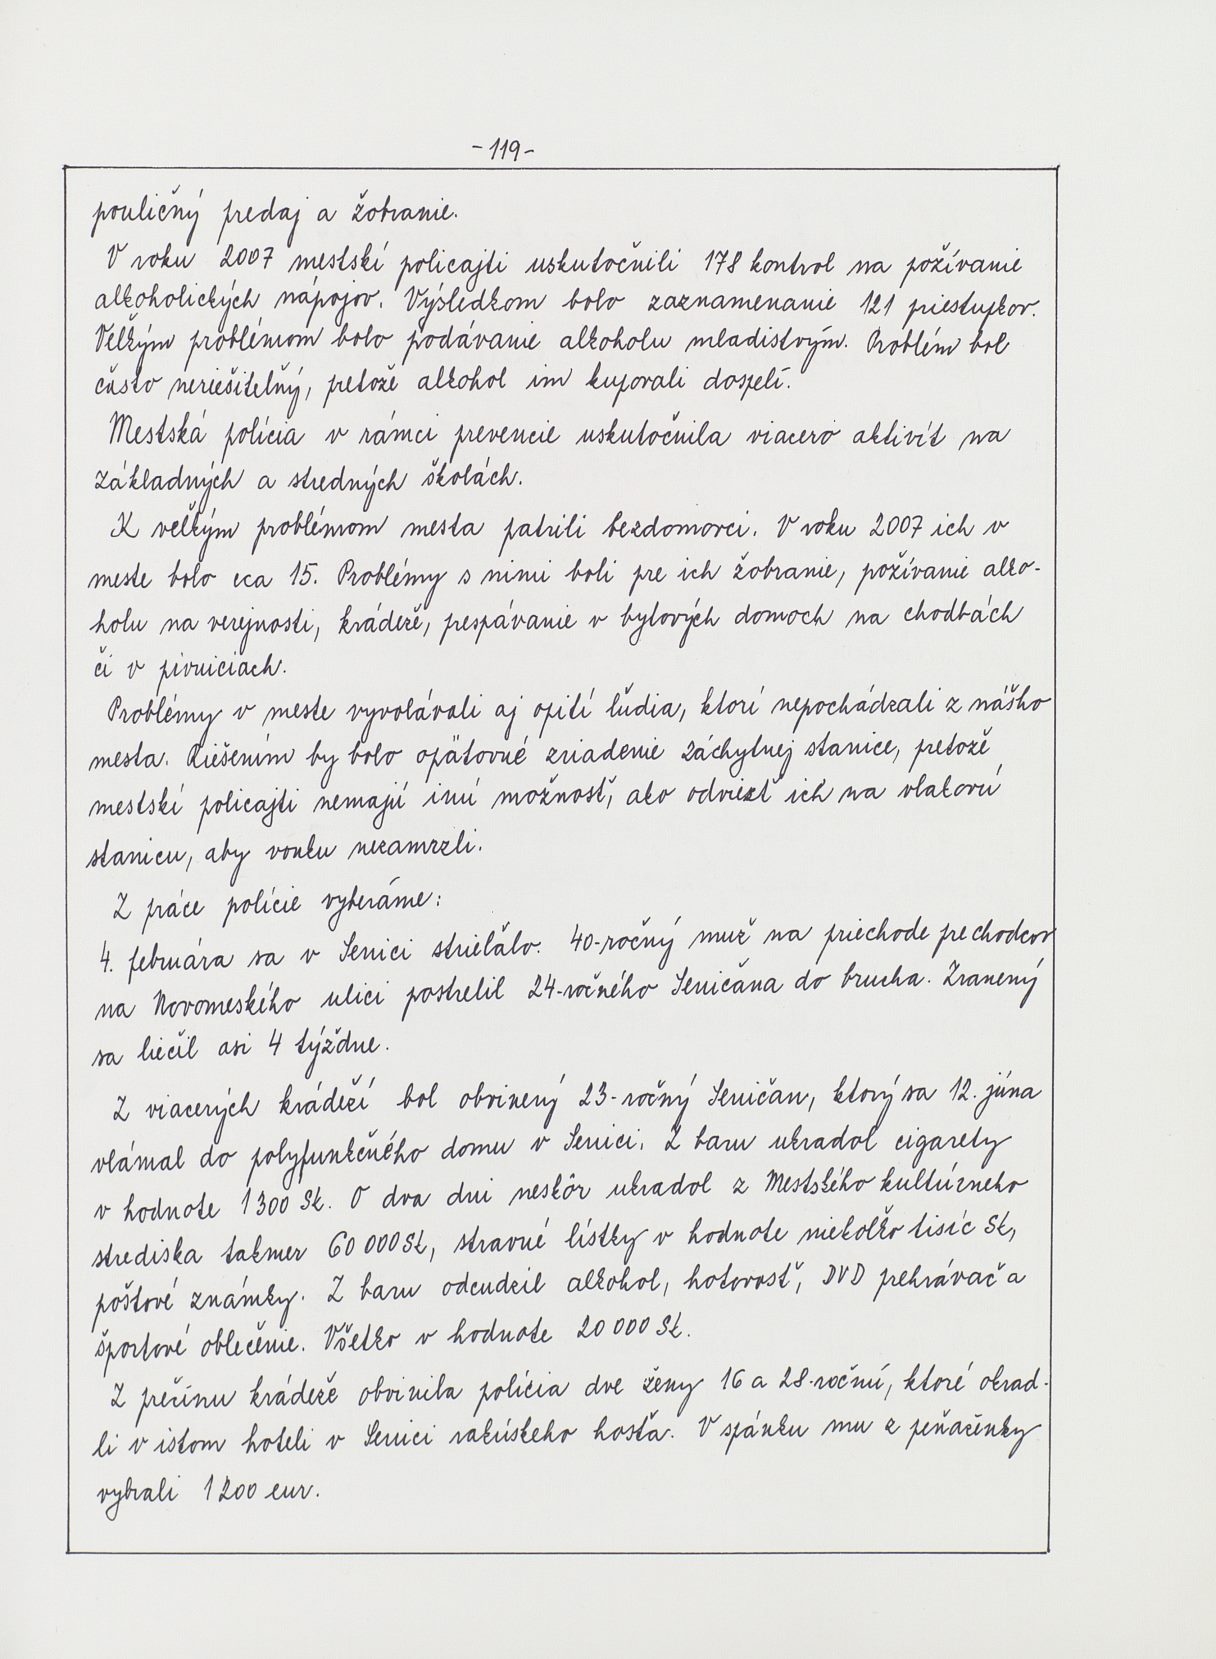 -119-
pouličný predaj a žobranie.
V roku 2007 mestskí policajti uskutočnili 178 kontrol na požívanie
alkoholických nápojov. Výsledkom bolo zaznamenanie 121 priestupkov.
Veľkým problémom bolo podávanie alkoholu mladistvým. Problém bol
často neriešiteľný, pretože alkohol im kupovali dospelí.
Mestská polícia v rámci prevencie uskutočnila viacero aktivít na
základných a stredných školách.
K veľkým problémom mesta patrili bezdomovci. V roku 2007 ich v
meste bolo cca 15. Problémy s nimi boli pre ich žobranie, požívanie alko-
holu na verejnosti, krádeže, prespávanie v bytových domoch na chodbách
či v pivniciach.
Problémy v meste vyvolávali aj opití ľudia, ktorí nepochádzali z nášho
mesta. Riešením by bolo opätovné zriadenie záchytnej stanice, pretože
mestskí policajti nemajú inú možnosť, ako odviezť ich na vlakovú
stanicu, aby vonku nezamrzli.
Z práce polície vyberáme:
4. februára sa v Senici strieľalo. 40-ročný muž na priechode pre chodcov
na Novomeského ulici postrelil 24-ročného Seničana do brucha. Zranený
sa liečil asi 4 týždne.
Z viacerých krádeží bol obvinený 23-ročný Seničan, ktorý sa 12. júna
vlámal do polyfunkčného domu v Senici. Z baru ukradol cigarety
v hodnote 1300 Sk. O dva dni neskôr ukradol z Mestského kultúrneho
strediska takmer 60 000 Sk, stravné lístky v hodnote niekoľko tisíc Sk,
poštové známky. Z baru odcudzil alkohol, hotovosť, DVD prehrávač a
športové oblečenie. Všetko v hodnote 20 000 Sk.
Z prečinu krádeže obvinila polícia dve ženy 16 a 28-ročnú, ktoré okrad-
li v istom hoteli v Senici rakúskeho hosťa. V spánku mu z peňaženky
vybrali 1 200 eur.